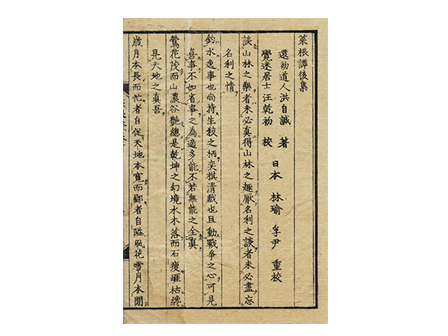 菜根譚後集
還初道人洪自誠 著
覺迷居士汪乾初 校
日本 林瑜 孚尹 重校
談山林之樂者未必真得山林之趣厭名利之談者未必盡忘
名利之情
釣水逸事也尚持生殺之柄奕棋清戲也且動戰爭之心可見
喜事不如省事之為適多能不若無能之全真
鶯花茂而山濃谷艷總是乾坤之幻境水木落而石瘦崖枯纔
見天地之真吾
歲月本長而忙者自促天地本寬而鄙者自隘風花雪月本閒